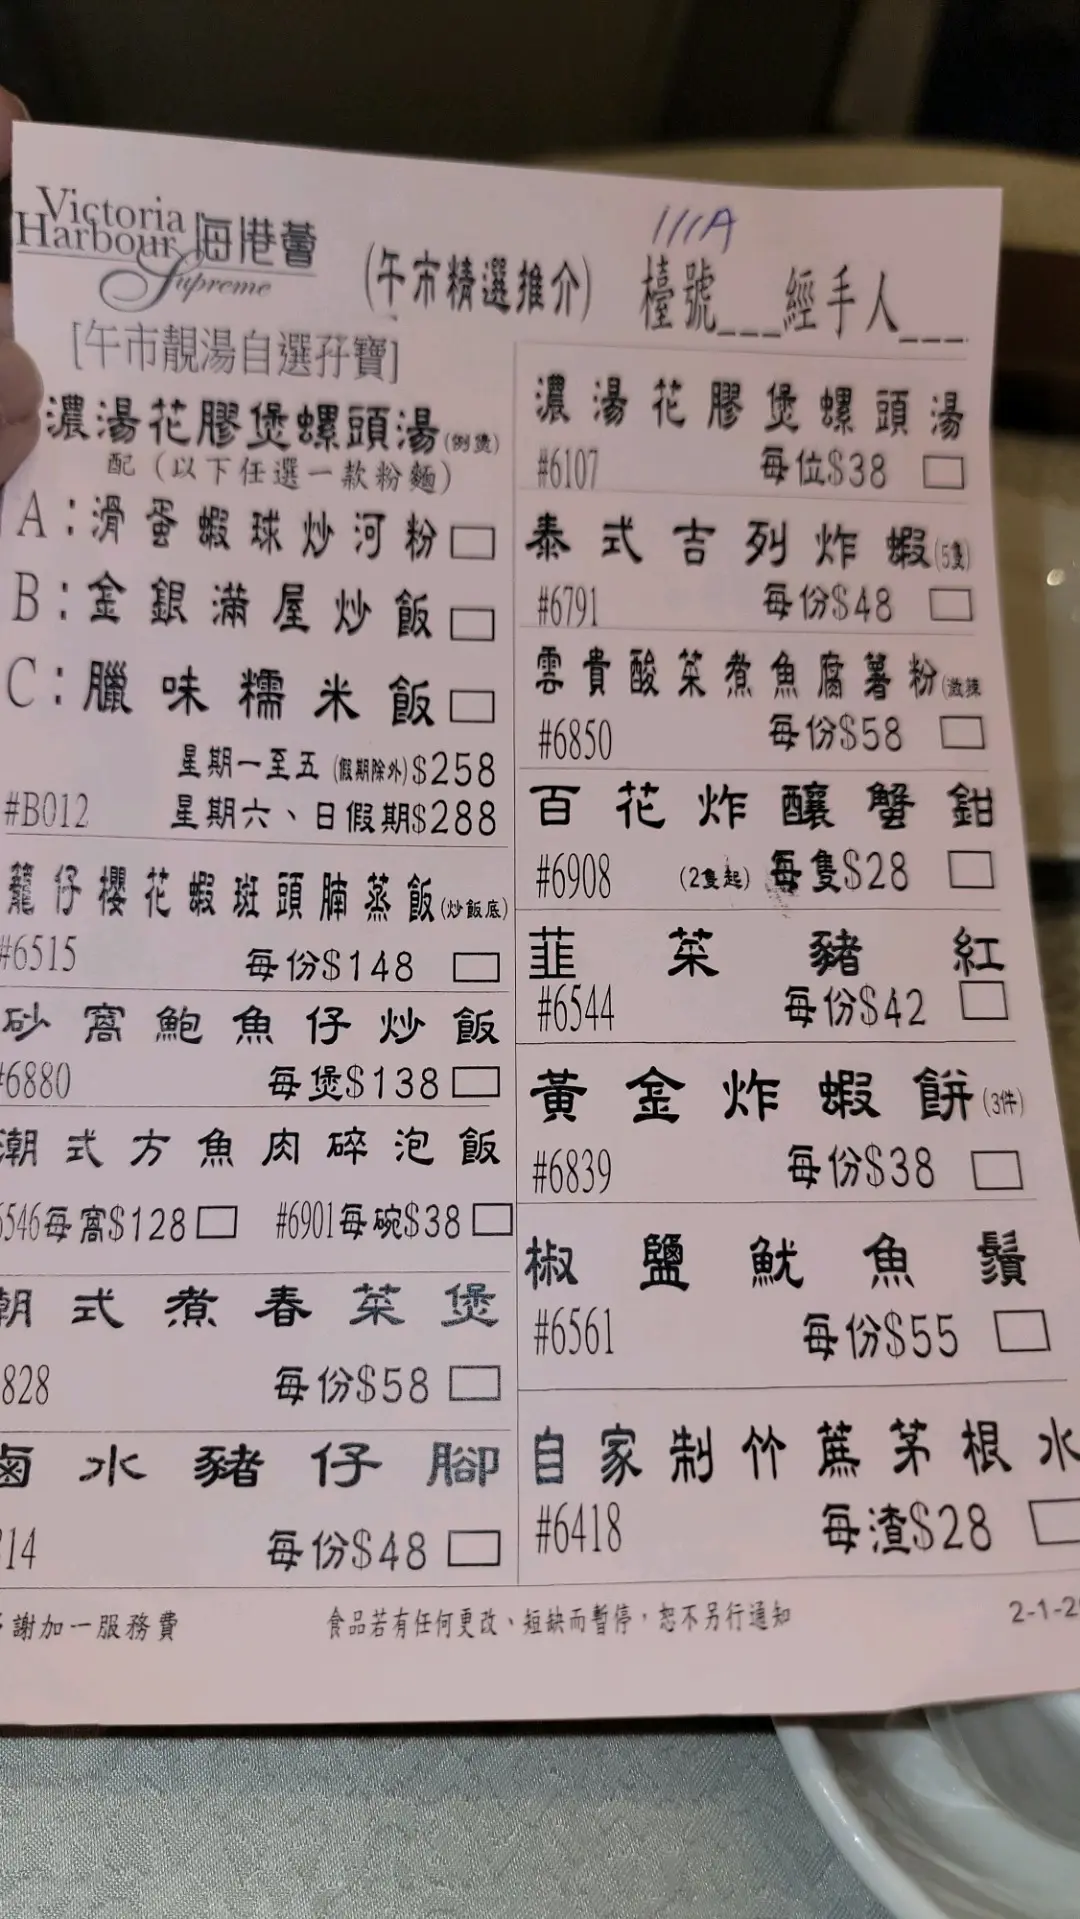 Victoria
Harbour 海港薈
Supreme
(午市精選推介)
111A
檯號___經手人___
[午市靚湯自選孖寶]
濃湯花膠煲螺頭湯(例煲)
配(以下任選一款粉麵)
A:滑蛋蝦球炒河粉
B:金銀滿屋炒飯
C:臘味糯米飯
星期一至五(假期除外)$258
#B012 星期六、日假期$288
籠仔櫻花蝦斑頭腩蒸飯(炒飯底)
#6515 每份$148
砂窩鮑魚仔炒飯
#6880 每煲$138
潮式方魚肉碎泡飯
6546每窩$128 #6901每碗$38
潮式煮春菜煲
828 每份$58
鹵水豬仔腳
14 每份$48
濃湯花膠煲螺頭湯
#6107 每位$38
泰式吉列炸蝦(5隻)
#6791 每份$48
雲貴酸菜煮魚腐薯粉(微辣
#6850 每份$58
百花炸釀蟹鉗
#6908 (2隻起) 每隻$28
韮菜豬紅
#6544 每份$42
黃金炸蝦餅(3件)
#6839 每份$38
椒鹽魷魚鬚
#6561 每份$55
自家制竹蔗茅根水
#6418 每渣$28
謝加一服務費
食品若有任何更改、短缺而暫停,恕不另行通知
2-1-2